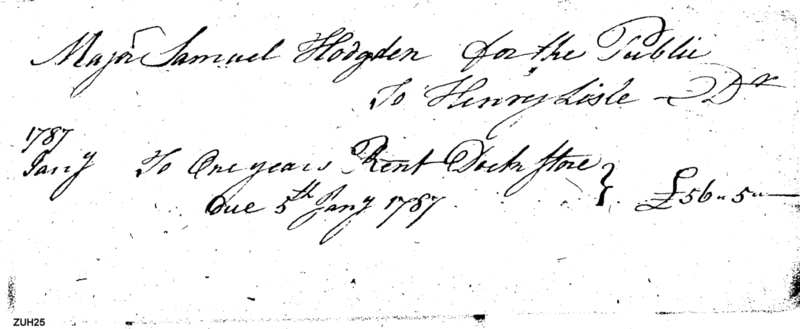 Major Samuel Hodgden for the Public
To Henry Lisle Dr
1787
Jany To One years Rent Dock store
Due 5th Jany 1787 } £56 " 5 " —
ZUH25